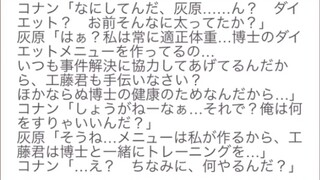 コナン「なにしてんだ、灰原……ん？　ダイ
エット？　お前そんなに太ってたか？」
灰原「はぁ？私は常に適正体重…博士のダイ
エットメニューを作ってるの…
いつも事件解決に協力してあげてるんだか
ら、工藤君も手伝いなさい？
ほかならぬ博士の健康のためなんだから…」
コナン「しょうがねーなぁ…それで？俺は何
をすりゃいいんだ？」
灰原「そうね…メニューは私が作るから、工
藤君は博士と一緒にトレーニングを…」
コナン「…え？　ちなみに、何やるんだ？」